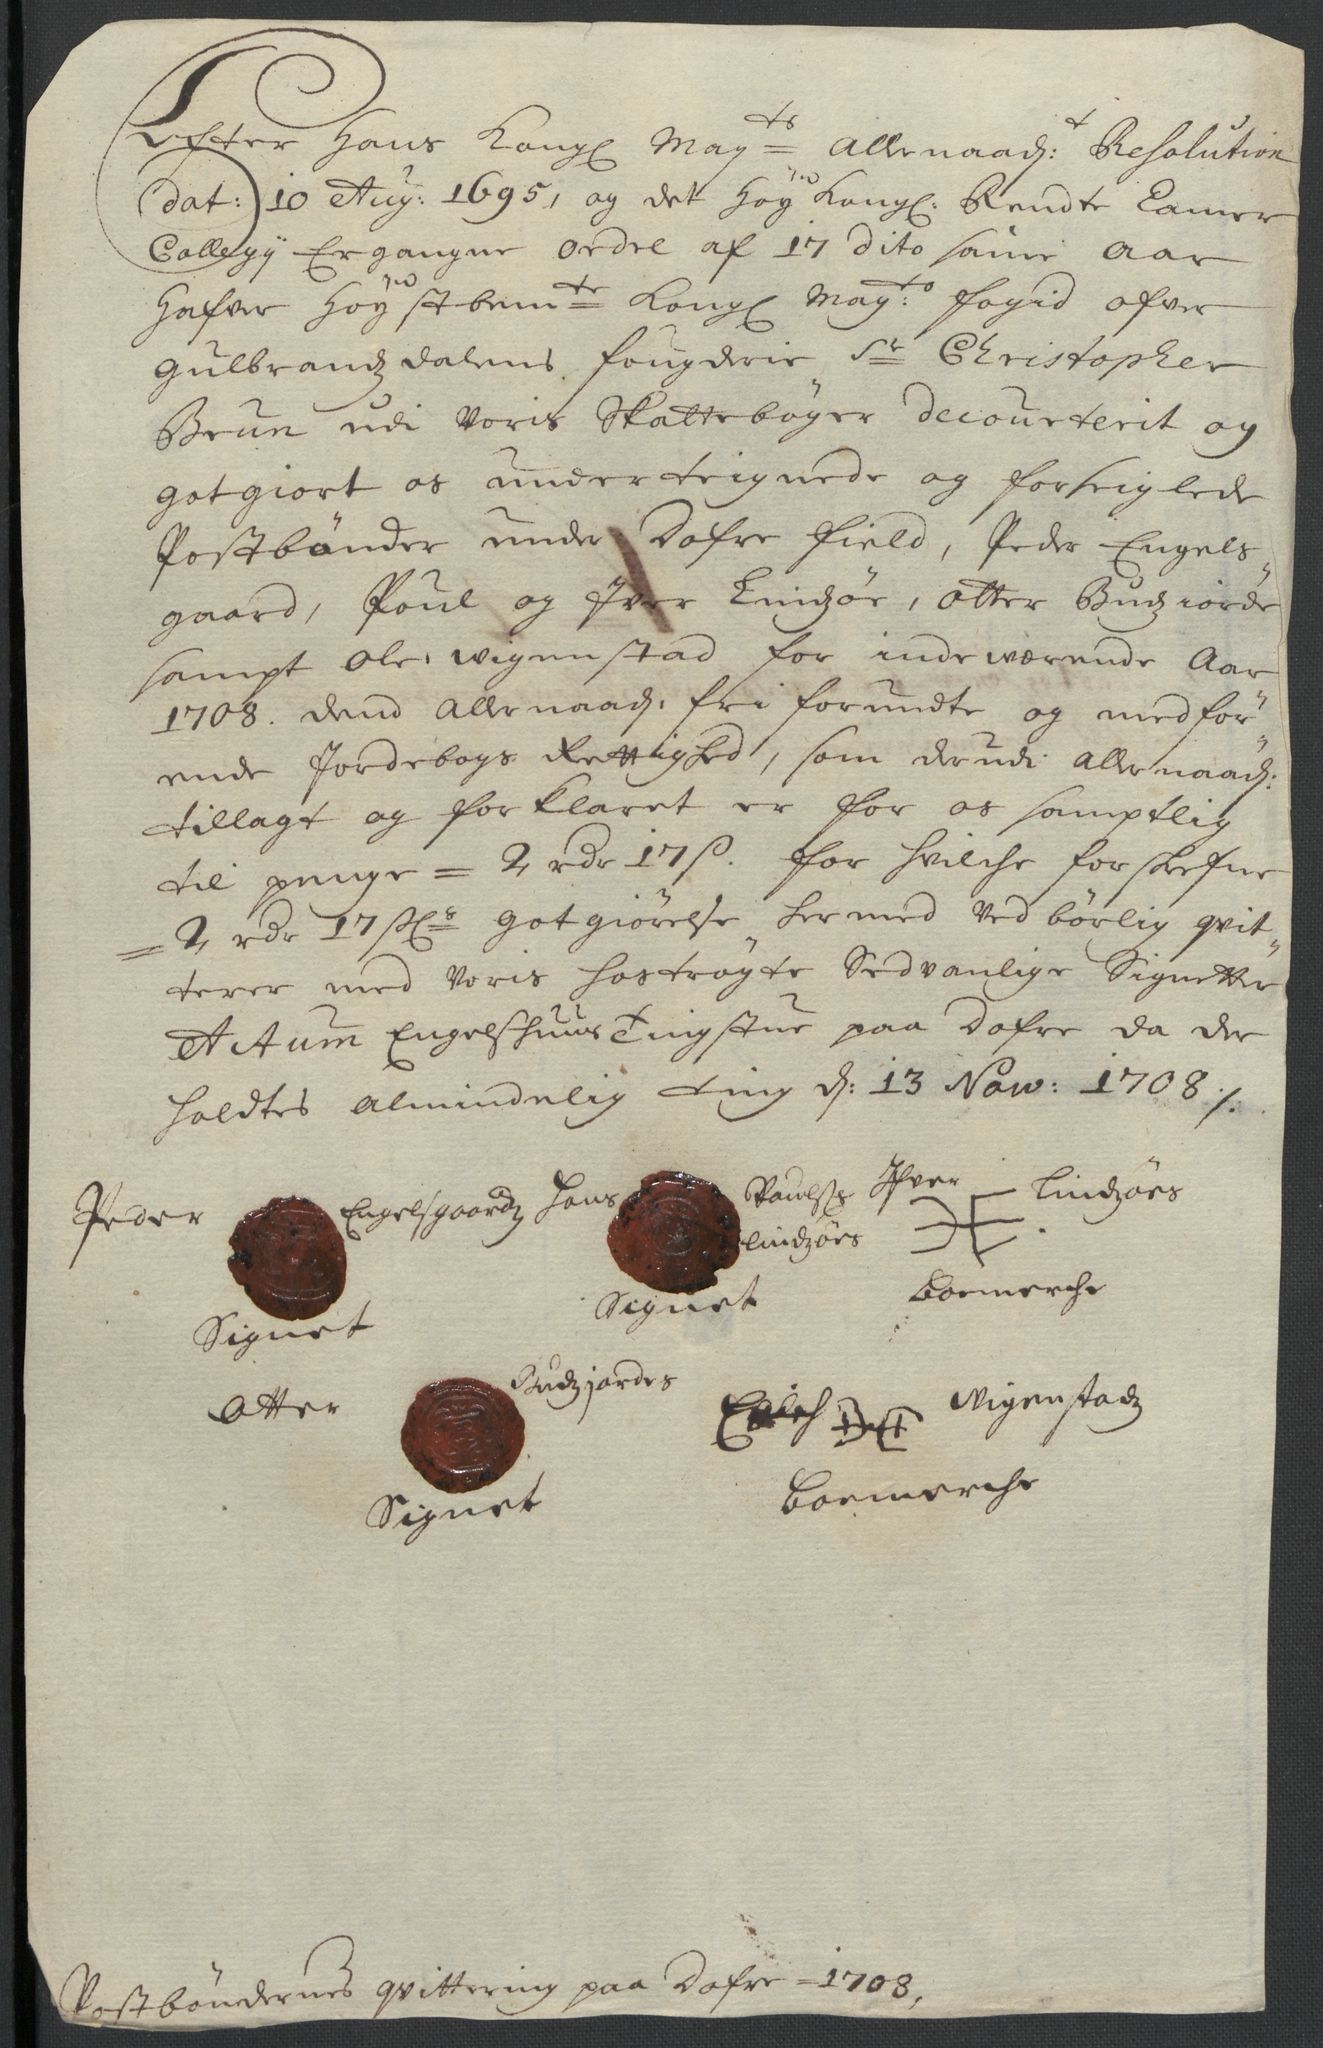 Efter Hans Kongl Mayts Allernaadt: Resolution
dat: 10 Aug: 1695, og det Høy Kongl: Rendte Camer
Collegij Ergangne ordre af 17 dito samme Aar
Hafver Høystbemte Kongl Mayts: fogid ofver
Gulbrandzdalens fougderie Sr Christopher
Brun udi voris Skattebøger decourterit og
gotgiort os underteignede og forseiglede
Postbønder under Dofre field, Peder Engels„
gaard, Poul og Iver Lindsøe, Otter Budziorde
sampt Ole Wigenstad for indeværende Aar
1708. dend Allernaad: fri forundte og medfør„
ende Jordebogs Rettighed, som derudi Allernaad:
tillagt og forklaret er for os samptlig
til penge = 2 rdr 17 β. for hvilche forskrefne
= 2 rdr 17 βls gotgiørelse hermed ved børlig qvit„
terer med voris hostrøgte Sedvanlige Signetter
Actum Engelshuus Tingstue paa Dofre da der
holdtes almindelig Ting d: 13 Now: 1708 /.
Peder Engelsgaardz Hans Poulss Ifver Lindzøes
Lindzøes
Signet Signet Boemerche
Otter Budzjordes Wigenstadz
Signet Boemerche
Postbøndernes qvittering paa Dofre = 1708,